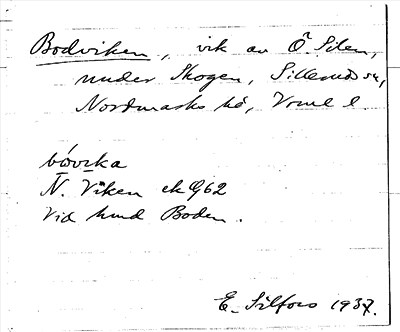 Bodviken, vik av Ö. Silen,
under Skogen, Sillerud sn,
Nordmarks hd, Vrml l.
bóvika
N. Viken ek G62
vid hmd Boden.
E. Silfors 1937.